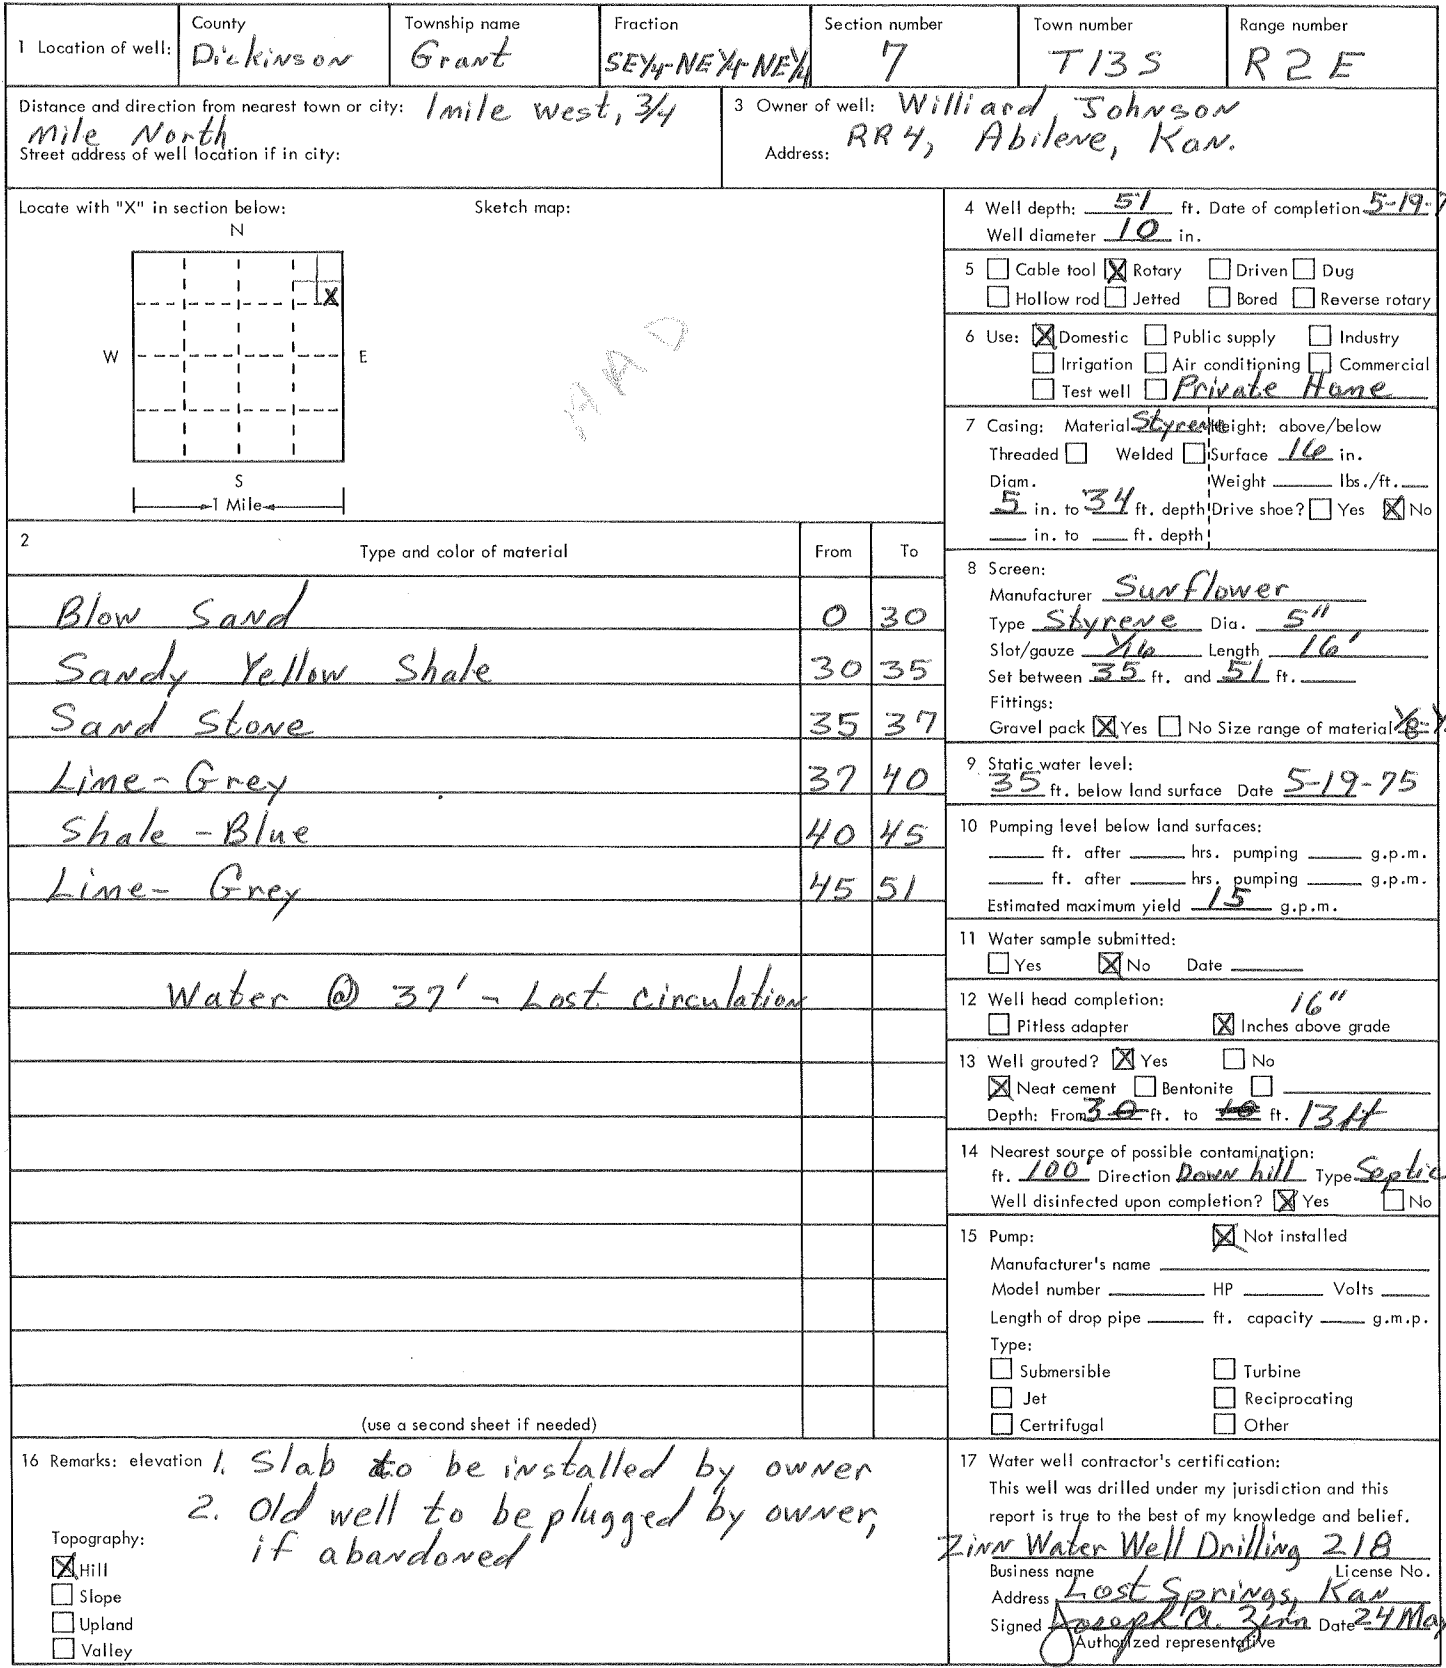 1 Location of well:
County
Dickinson
Township name
Grant
Fraction
SE¼-NE¼-NE¼
Section number
7
Town number
T13S
Range number
R2E
Distance and direction from nearest town or city: 1mile west, 3/4
Mile North
Street address of well location if in city:
3 Owner of well: Williard Johnson
Address: RR4, Abilene, Kan.
Locate with "X" in section below:
Sketch map:
N
X
W E
S
1 Mile
AAD
2
Type and color of material From To
Blow Sand 0 30
Sandy Yellow Shale 30 35
Sand Stone 35 37
Lime-Grey 37 40
Shale -Blue 40 45
Lime- Grey 45 51
Water @ 37' - Lost Circulation
(use a second sheet if needed)
4 Well depth: 51 ft. Date of completion 5-19-
Well diameter 10 in.
5 Cable tool X Rotary Driven Dug
Hollow rod Jetted Bored Reverse rotary
6 Use: X Domestic Public supply Industry
Irrigation Air conditioning Commercial
Test well Private Home
7 Casing: Material Styrene Height: above/below
Threaded Welded Surface 16 in.
Diam. Weight lbs./ft.
5 in. to 34 ft. depth Drive shoe? Yes X No
in. to ft. depth
8 Screen:
Manufacturer Sunflower
Type Styrene Dia. 5"
Slot/gauze 1/16 Length 16'
Set between 35 ft. and 51 ft.
Fittings:
Gravel pack X Yes No Size range of material
9 Static water level:
35 ft. below land surface Date 5-19-75
10 Pumping level below land surfaces:
ft. after hrs. pumping g.p.m.
ft. after hrs. pumping g.p.m.
Estimated maximum yield 15 g.p.m.
11 Water sample submitted:
Yes X No Date
12 Well head completion: 16"
Pitless adapter X Inches above grade
13 Well grouted? X Yes No
X Neat cement Bentonite
Depth: From 30 ft. to 10 ft. 13 ft
14 Nearest source of possible contamination:
ft. 100' Direction Down hill Type Septic
Well disinfected upon completion? X Yes No
15 Pump: X Not installed
Manufacturer's name
Model number HP Volts
Length of drop pipe ft. capacity g.m.p.
Type:
Submersible Turbine
Jet Reciprocating
Certrifugal Other
16 Remarks: elevation 1. Slab to be installed by owner
2. Old well to be plugged by owner,
if abandoned
Topography:
X Hill
Slope
Upland
Valley
17 Water well contractor's certification:
This well was drilled under my jurisdiction and this
report is true to the best of my knowledge and belief.
Zinn Water Well Drilling 218
Business name License No.
Address Lost Springs, Kan
Signed Joseph A. Zinn Date 24 May
Authorized representative